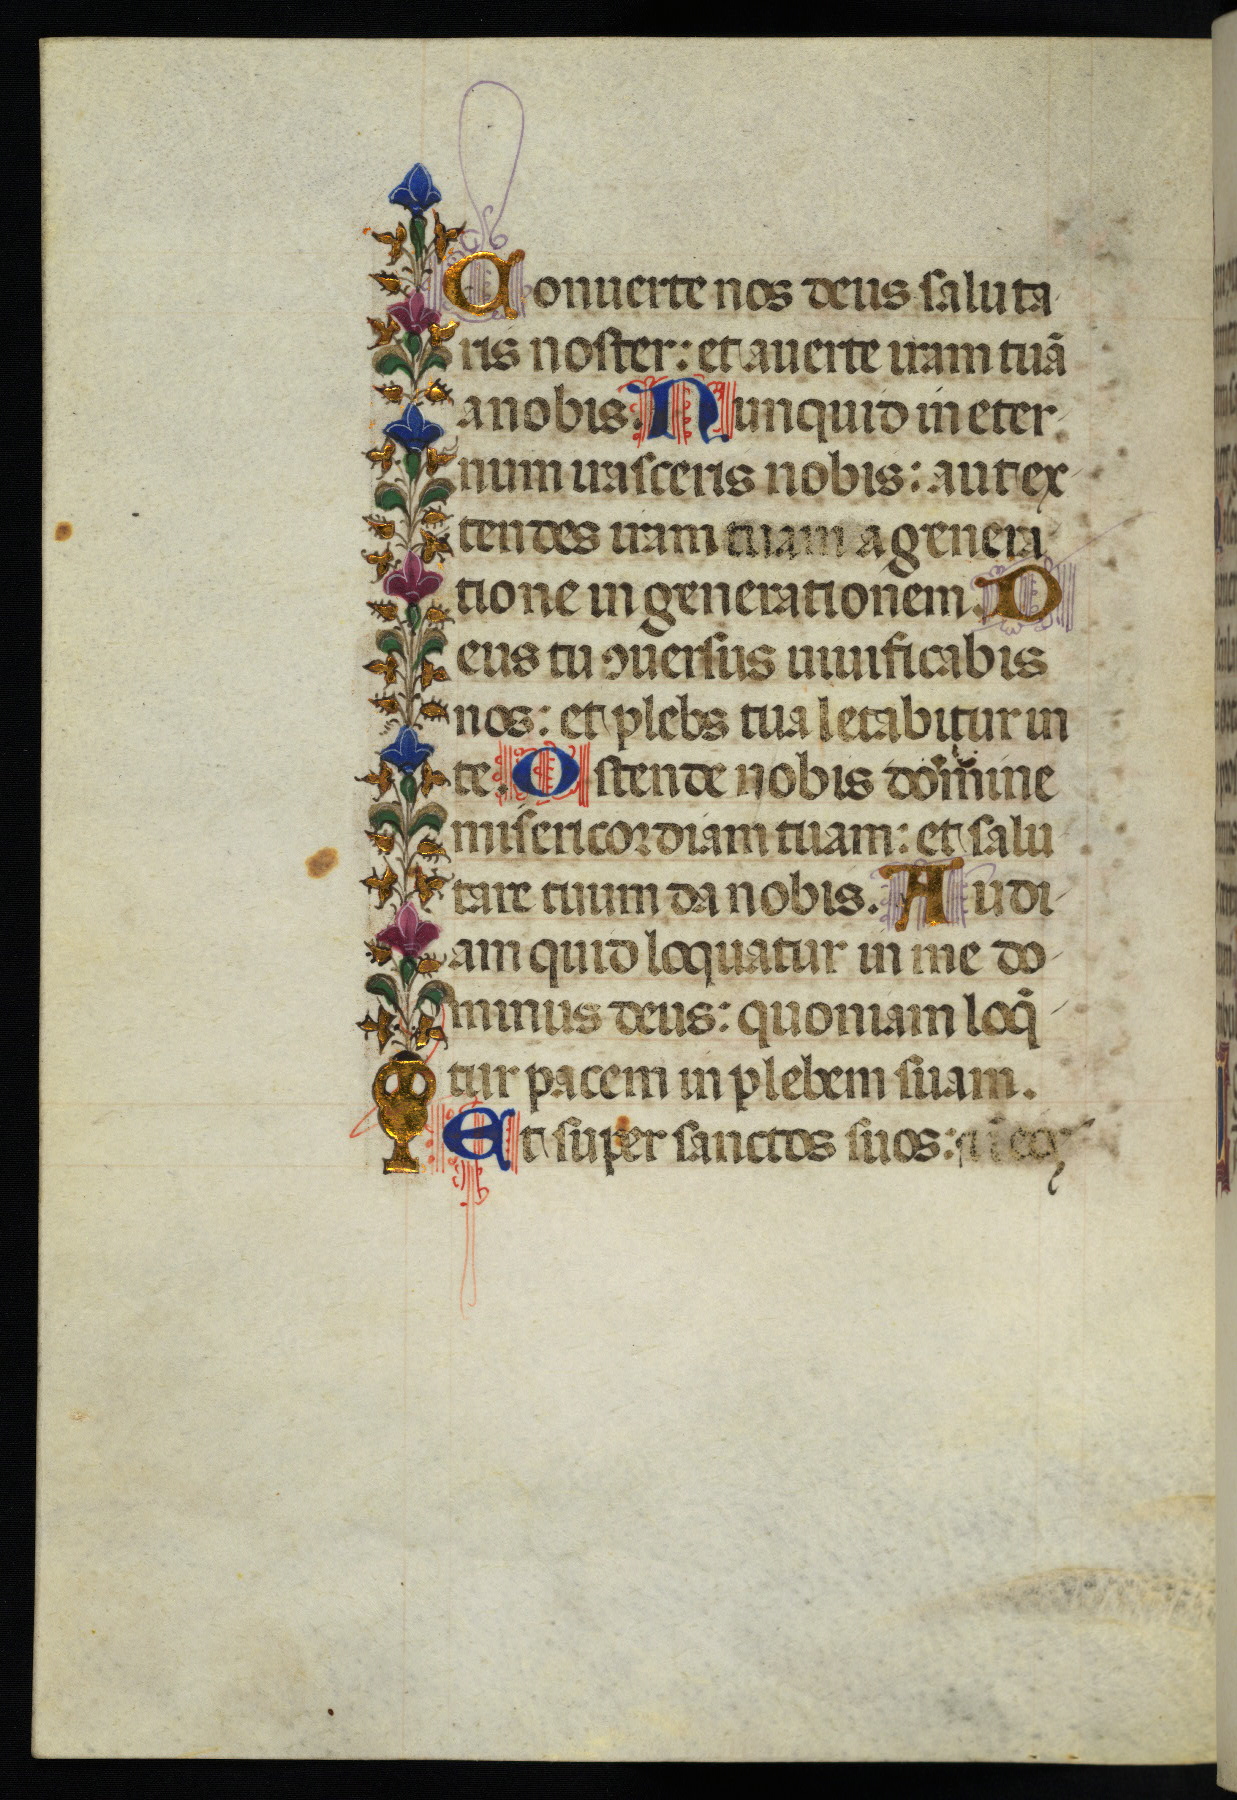 Conuerte nos deus saluta
ris noster: et auerte iram tuā
a nobis. Nunquid in eter
num irasceris nobis: aut ex
tendes iram tuam a genera
tione in generationem. D
eus tu ꝯuersus uiuificabis
nos: et plebs tua letabitur in
te. Ostende nobis domine
misericordiam tuam: et salu
tare tuum da nobis. Audi
am quid loquatur in me do
minus deus: quoniam loq̄
tur pacem in plebem suam.
Et super sanctos suos: